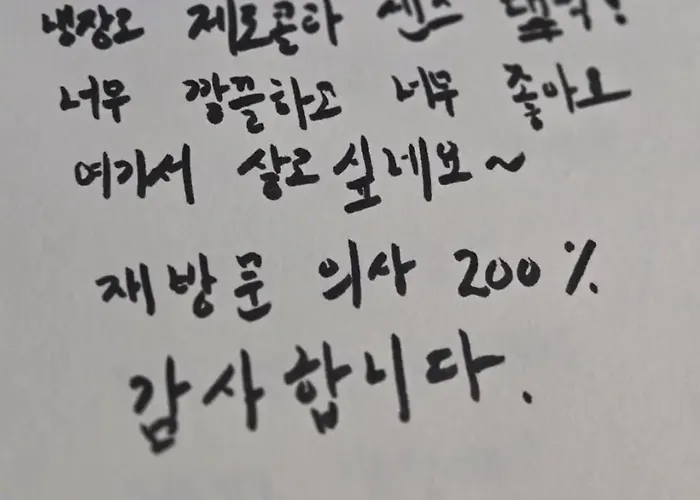 냉장고 제로콜라 센스
너무 깔끔하고 너무 좋아요
여기서 살고싶네요~
재방문 의사 200%
감사합니다.